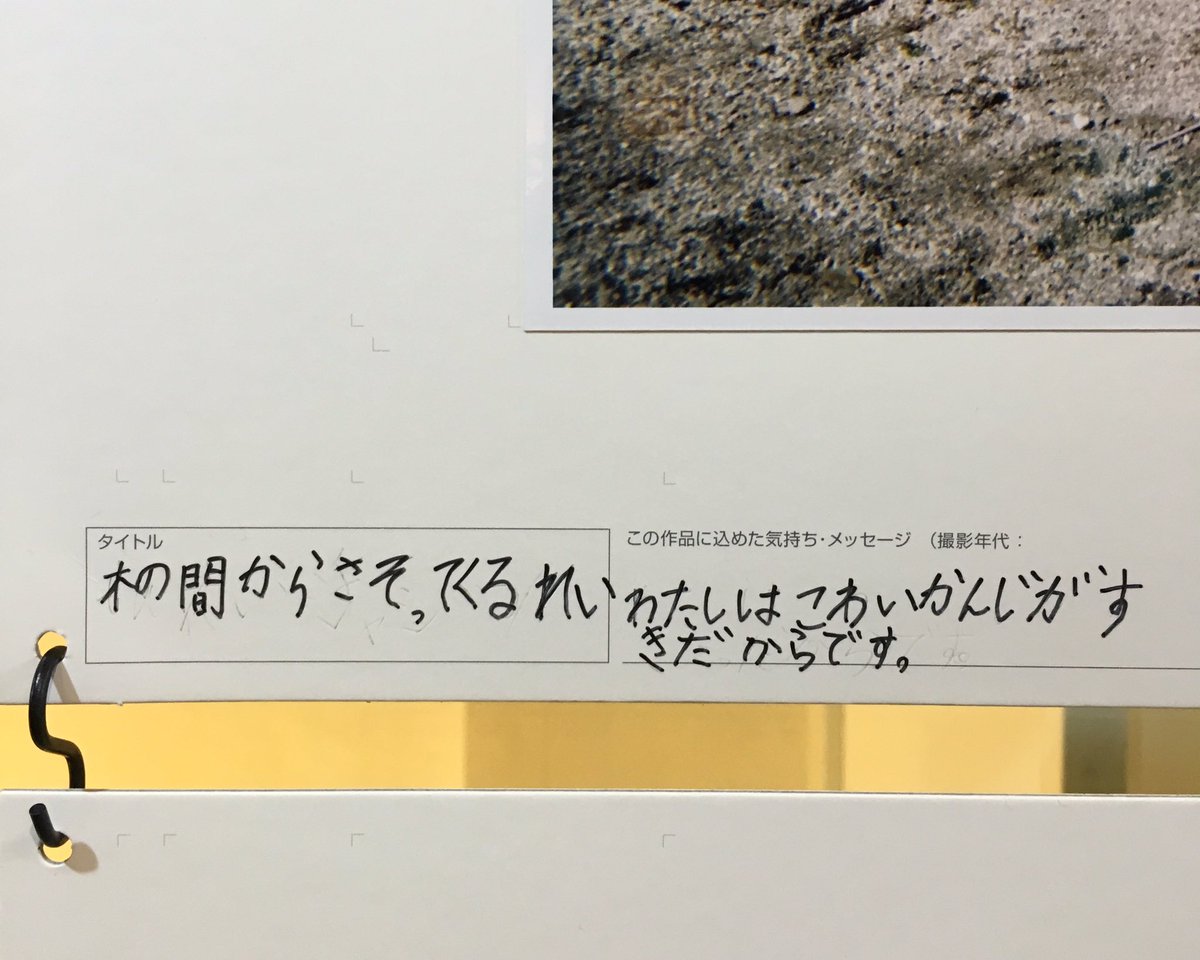 タイトル
木の間からさそってくるれい
この作品に込めた気持ち・メッセージ （撮影年代：
わたしはこわいかんじがす
きだからです。